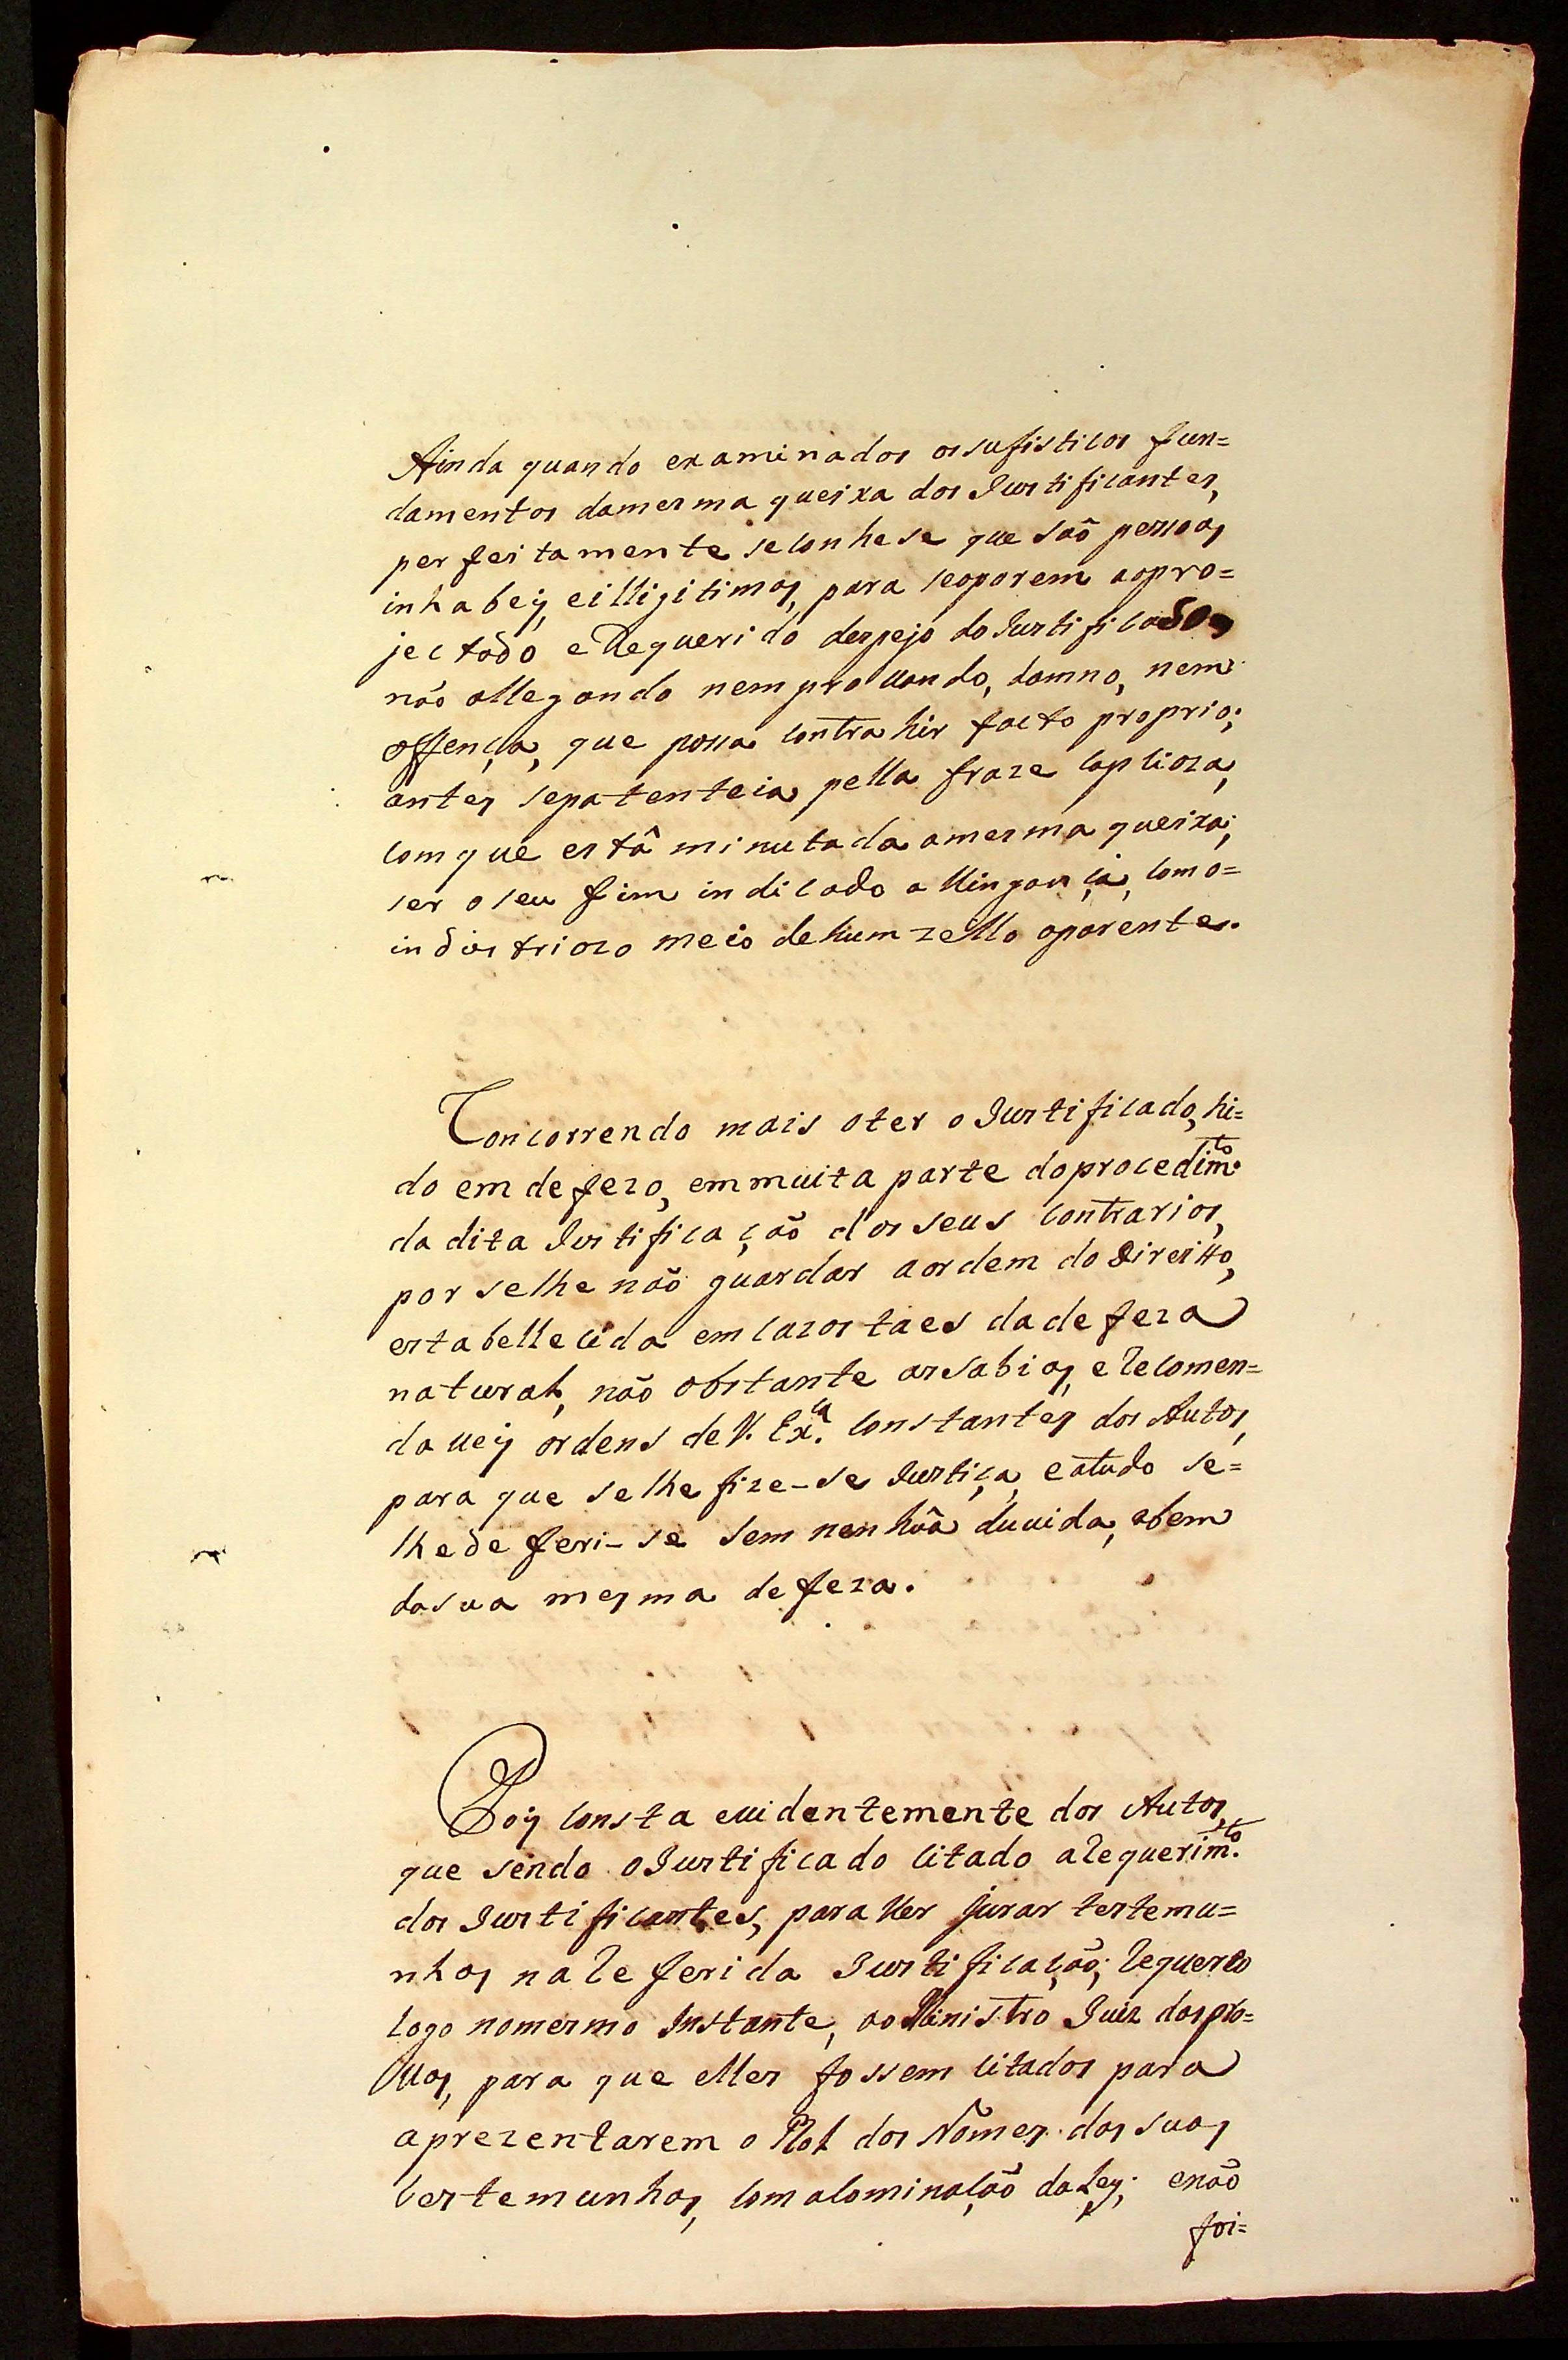 Ainda quando examinados os sufisticos fun=
damentos da mesma queixa dos Justificantes,
perfeitamente se conhese que saõ pessoas
inhabeis, e illigitimas, para se oporem ao pro=
jectado e Requerido despejo do Justificado,
não allegando nem provando, damno, nem
offença, que possa contrahir facto proprio;
antes se patenteia, pella fraze capcioza,
com que está minutada a mesma queixa;
ser o seu fim indicado a Vingança, como=
industriozo meio de hum zello aparente.
Concorrendo mais o ter o Justificado, hi=
do em defezo, em muita parte do procedim.to
da dita Justificação dos seus contrarios,
por se lhe naõ guardar a ordem do Direitto,
estabellecida em cazos taes da defeza
natural, não obstante as sabias, e recomen=
daveis ordens de V. Ex.ca constantes dos Autos,
para que se lhe fize-se Justiça, e a tudo se=
lhe deferi-se sem nenhuã duvida, a bem
da sua mesma defeza.
Pois consta evidentemente dos Autos,
que sendo o Justificado citado a requerim.to
dos Justificantes, para ver jurar testemu=
nhas na referida Justificação; requereo
logo no mesmo Instante, ao Ministro Juiz das pro=
vas, para que elles fossem citados para
aprezentarem o Rol dos Nomes das suas
testemunhas, com a cominação da Ley; e não
foi=